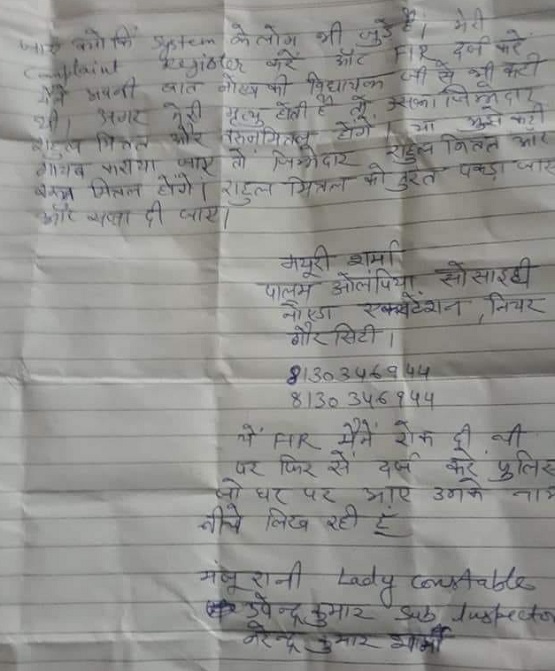 जाए क्योंकि system के लोग भी जुड़े हैं। मेरी
complaint register करें और FIR दर्ज करें
मैंने अपनी बात नोएडा की विधायक जी से भी कही
थी। अगर मेरी मृत्यु होती है तो उसका जिम्मेदार
राहुल मित्तल और मित्तल होंगे। या मुझे कहीं
गायब कराया जाए तो जिम्मेदार राहुल मित्तल और
मित्तल होंगे। राहुल मित्तल को तुरंत पकड़ा जाए
और सजा दी जाए।
मयूरी शर्मा
पालम ओलंपिया सोसाइटी
नोएडा एक्सटेंशन, नियर
गौर सिटी।
8130346944
8130346944
ये FIR मैंने रोक दी थी
पर फिर से दर्ज करें पुलिस
जो घर पर आए उनके नाम
नीचे लिख रही हूँ
मंजू रानी Lady constable
उपेन्द्र कुमार Sub Inspector
नरेन्द्र कुमार शर्मा